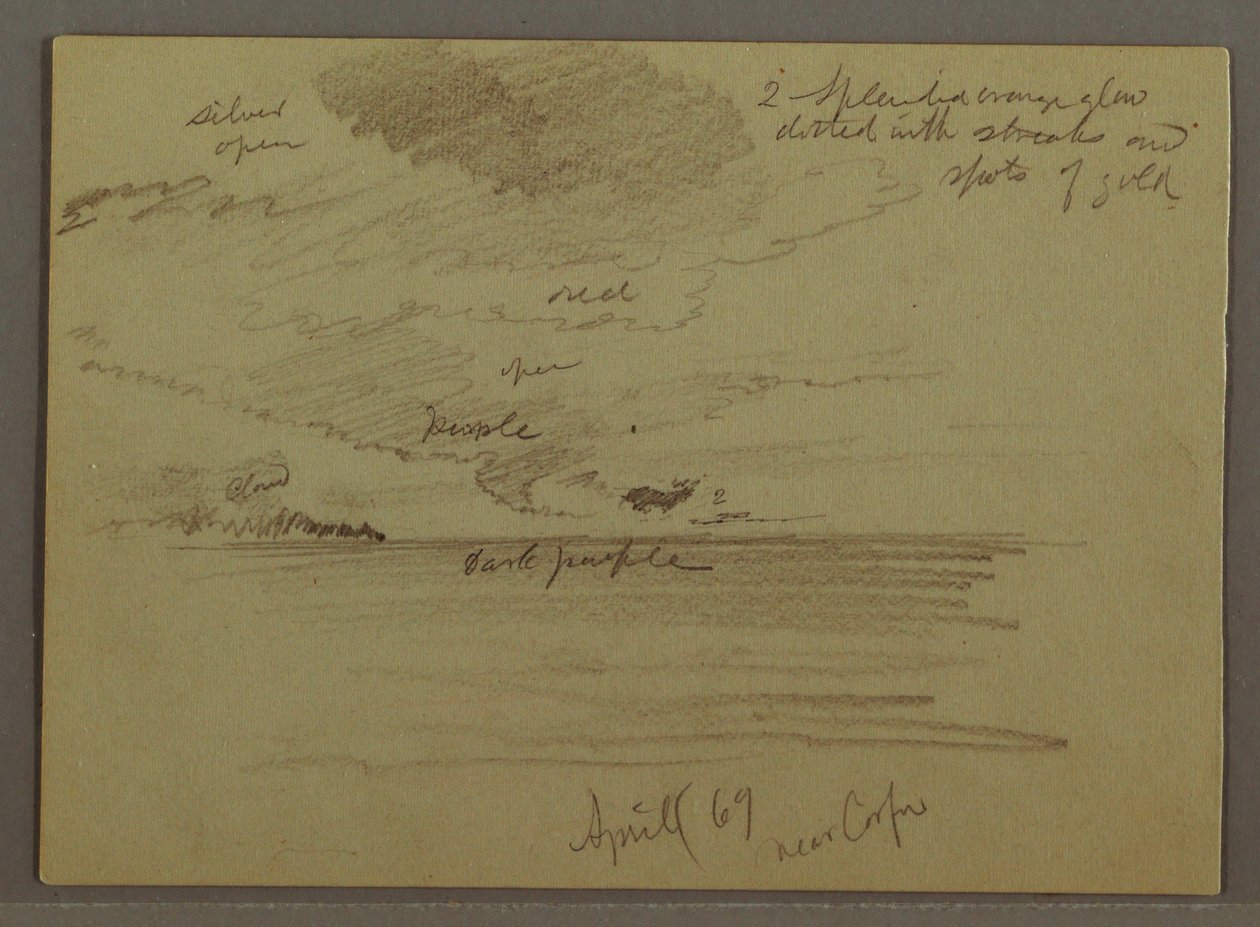 silver
open
2 Splendid orange glow
dotted with streaks and
spots of gold
red
open
purple
cloud
2
Dark purple
April 69
near Corfu